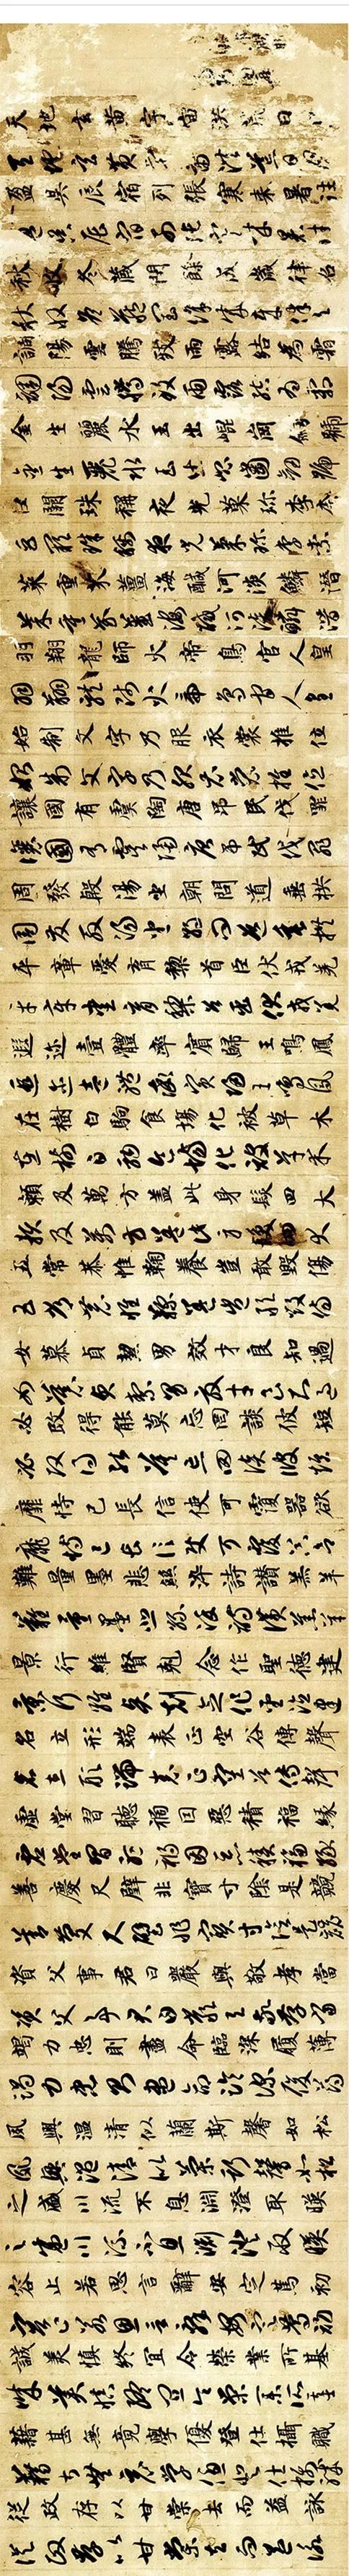 天地玄黄宇宙洪荒日
天地玄黄宇宙洪荒日月
盈昃辰宿列張寒来暑往
盈昃辰宿列張寒来暑往
秋收冬蔵閏餘成歳律呂
秋收冬蔵閏餘成歳律呂
調陽雲騰致雨露結為霜
調陽雲騰致雨露結為霜
金生麗水玉出崐崗劎號
金生麗水玉出崐崗劎號
巨闕珠稱夜光菓珎李柰
巨闕珠稱夜光菓珎李柰
菜重芥薑海醎河淡鱗潜
菜重芥薑海醎河淡鱗潜
羽翔龍師火帝鳥官人皇
羽翔龍師火帝鳥官人皇
始制文字乃服衣裳推位
始制文字乃服衣裳推位
讓國有虞陶唐吊民伐罪
讓國有虞陶唐吊民伐罪
周發殷湯坐朝問道垂拱
周發殷湯坐朝問道垂拱
平章愛育黎首臣伏戎羌
平章愛育黎首臣伏戎羌
遐迩壹體率賓歸王鳴鳳
遐迩壹體率賓歸王鳴鳳
在樹白駒食場化被草木
在樹白駒食場化被草木
賴及萬方盖此身髮四大
賴及萬方盖此身髮四大
五常恭惟鞠養豈敢毀傷
五常恭惟鞠養豈敢毀傷
女慕貞絜男效才良知過
女慕貞絜男效才良知過
必改得能莫忘罔談彼短
必改得能莫忘罔談彼短
靡恃己長信使可覆器欲
靡恃己長信使可覆器欲
難量墨悲絲淬詩讃羔羊
難量墨悲絲淬詩讃羔羊
景行維賢剋念作聖德建
景行維賢剋念作聖德建
名立形端表正空谷傳聲
名立形端表正空谷傳聲
虚堂習聽禍因惡積福縁
虚堂習聽禍因惡積福縁
善慶尺璧非寶寸陰是競
善慶尺璧非寶寸陰是競
資父事君曰嚴與敬孝當
資父事君曰嚴與敬孝當
竭力忠則盡命臨深履薄
竭力忠則盡命臨深履薄
夙興温清似蘭斯馨如松
夙興温清似蘭斯馨如松
之盛川流不息淵澄取暎
之盛川流不息淵澄取暎
容止若思言辭安定篤初
容止若思言辭安定篤初
誠美慎終宜令榮業所基
誠美慎終宜令榮業所基
藉甚無竟學優登仕攝職
藉甚無竟學優登仕攝職
從政存以甘棠去而益詠
從政存以甘棠去而益詠